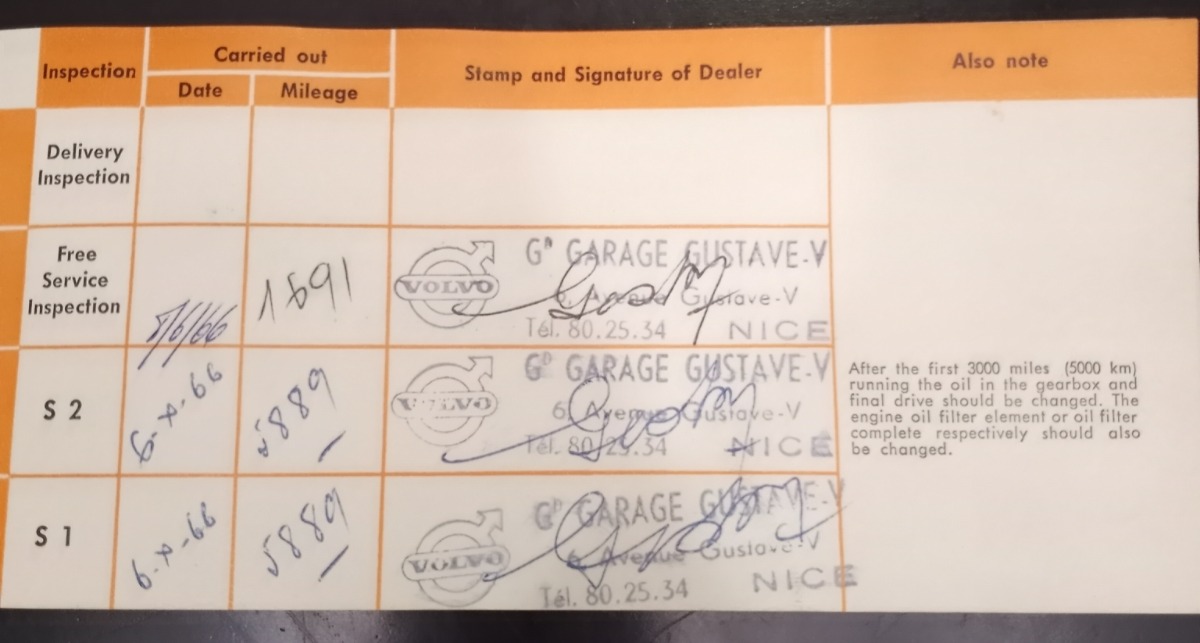 Inspection
Carried out
Date
Mileage
Stamp and Signature of Dealer
Also note
Delivery
Inspection
Free
Service
Inspection
/6/66
1691
VOLVO
Gᴰ GARAGE GUSTAVE-V
6, Avenue Gustave-V
Tél. 80.25.34 NICE
S 2
6-X-66
5889
VOLVO
Gᴰ GARAGE GUSTAVE-V
6, Avenue Gustave-V
Tél. 80.25.34 NICE
After the first 3000 miles (5000 km)
running the oil in the gearbox and
final drive should be changed. The
engine oil filter element or oil filter
complete respectively should also
be changed.
S 1
6-X-66
5889
VOLVO
Gᴰ GARAGE GUSTAVE-V
6, Avenue Gustave-V
Tél. 80.25.34 NICE